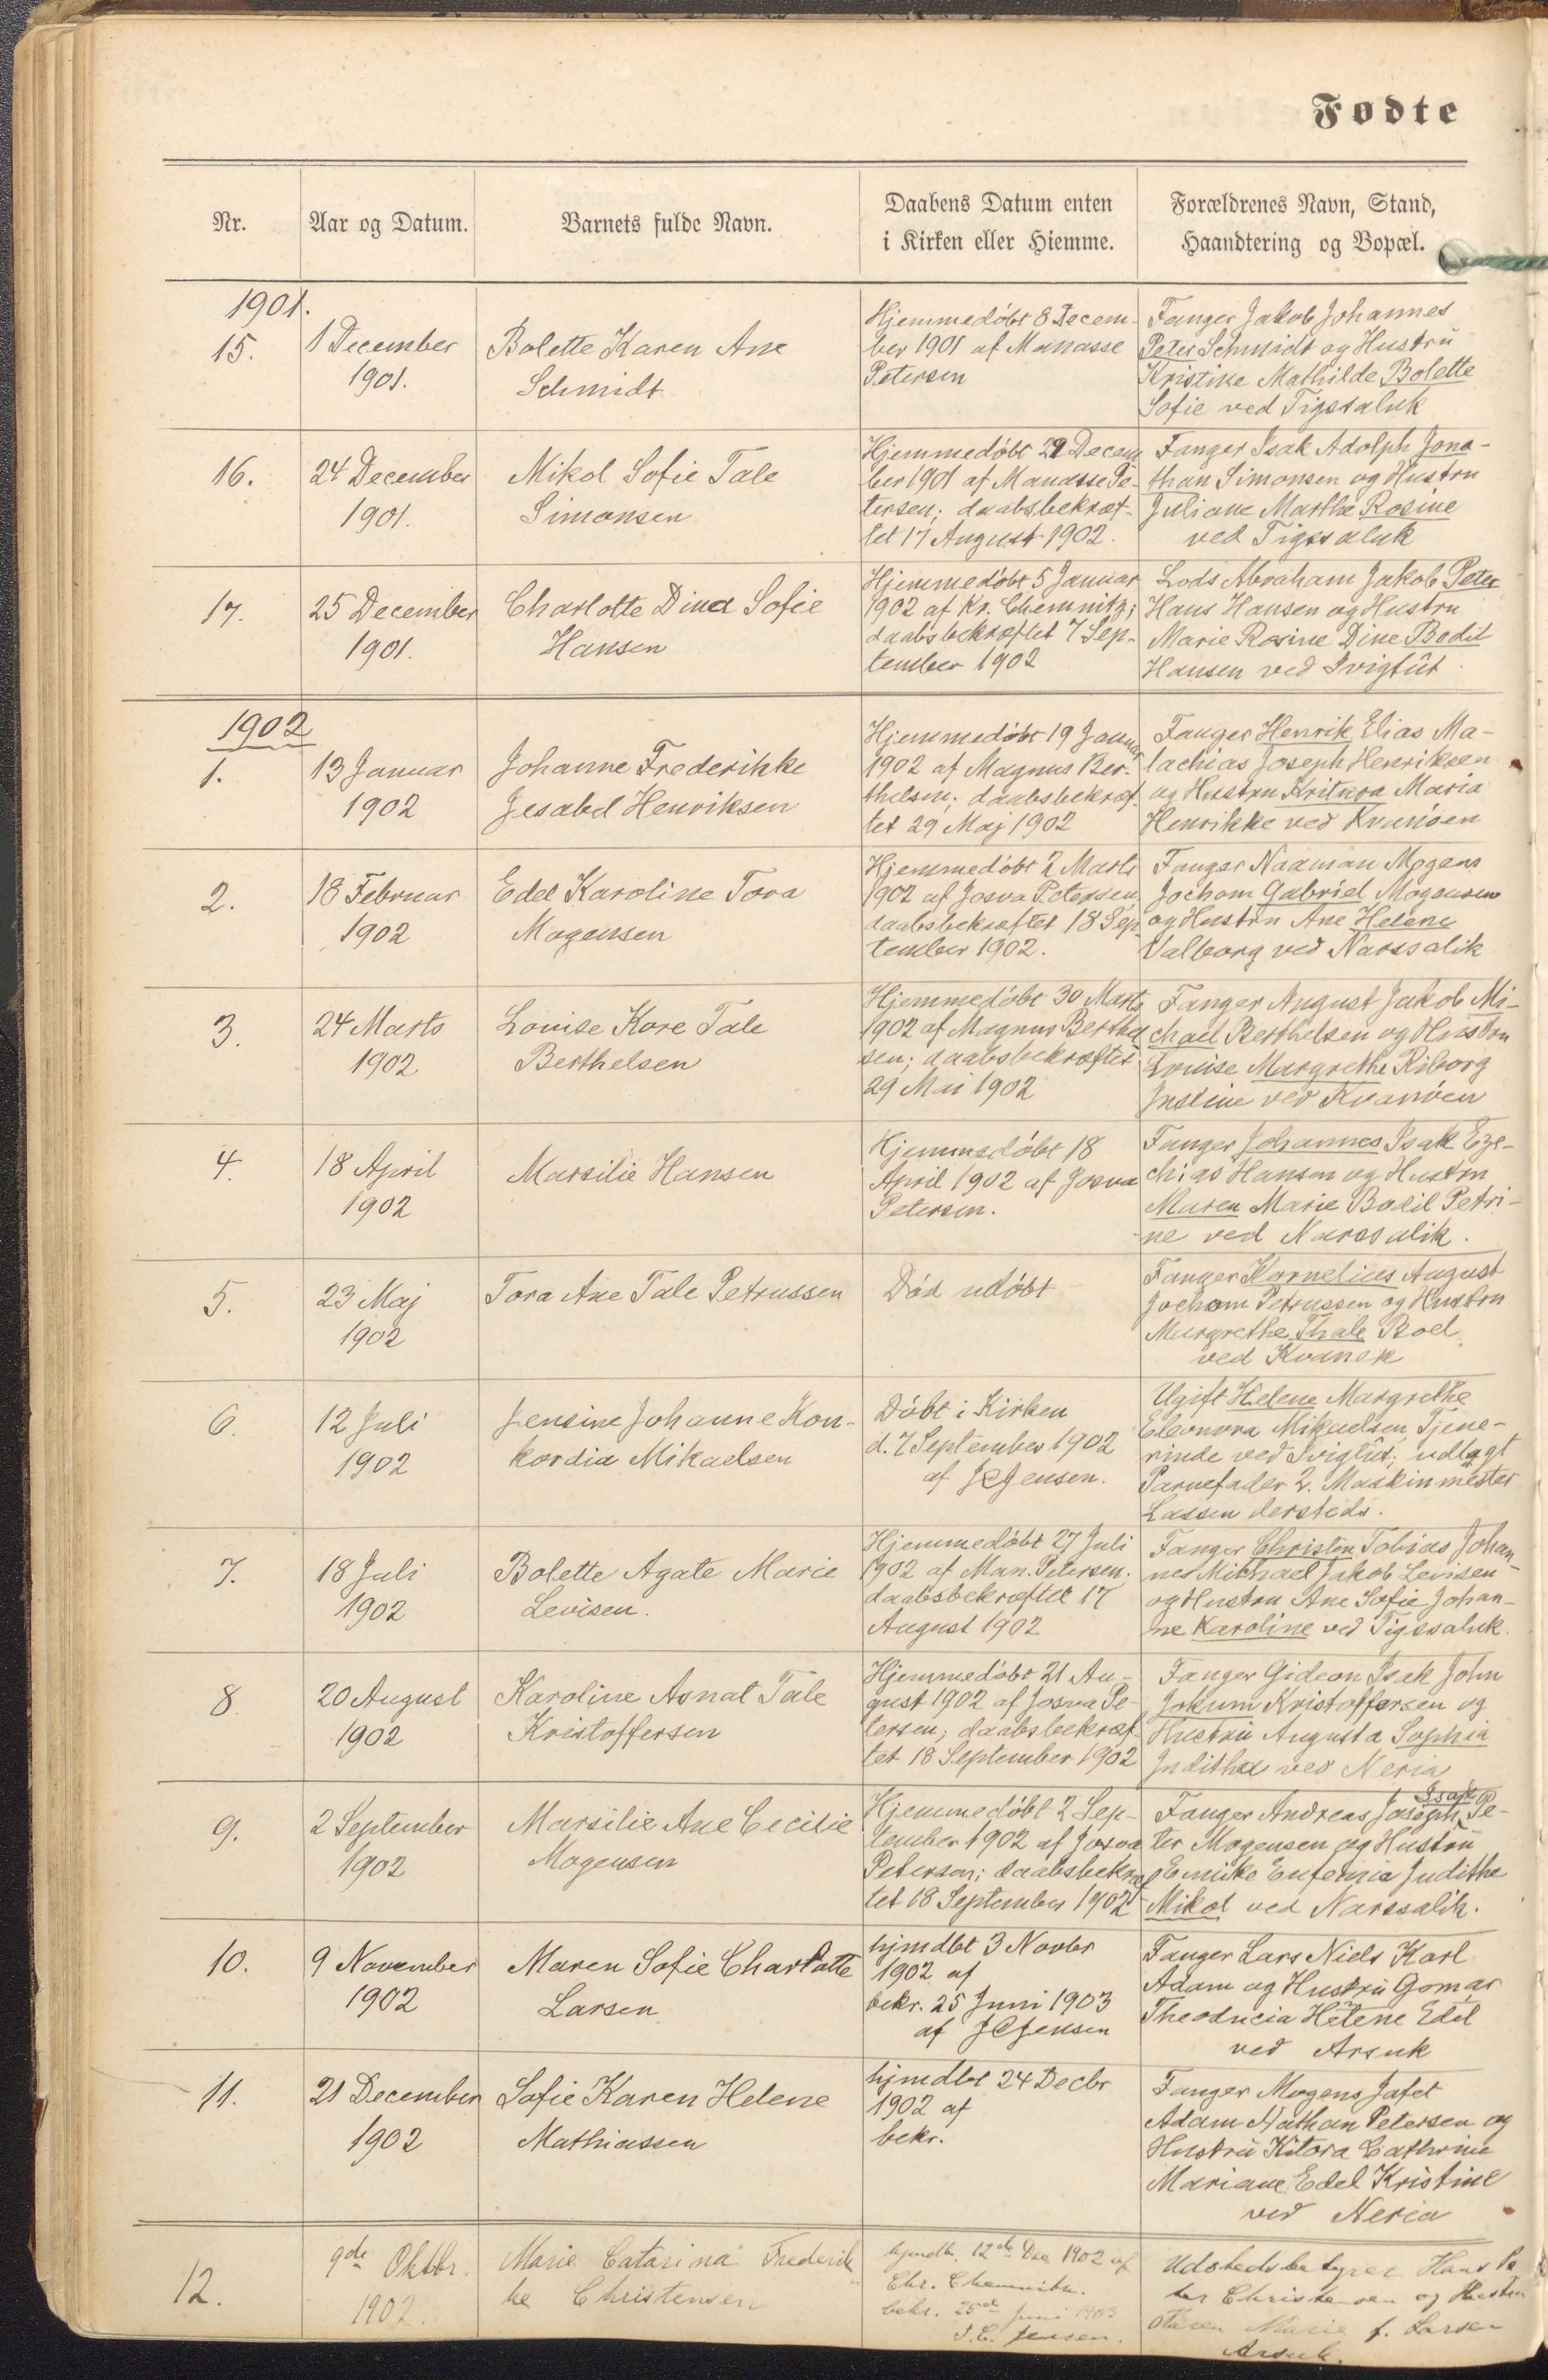 Fødte
Nr.
Aar og Datum.
Barnets fulde Navn.
Daabens Datum enten
i Kirken eller Hiemme.
Forældrenes Navn, Stand,
Haandtering og Bopæl.
1901.
15.
1 December
1901.
Bolette Karen Ane
Schmidt
Hjemmedöbt 8 Decem-
ber 1901 af Manasse
Petersen
Fanger Jakob Johannes
Peter Schmidt og Hustrû
Kristine Mathilde Bolette
Sofie ved Tigssaluk
16.
24 December
1901.
Mikol Sofie Tale
Simonsen
Hjemmedöbt 29 Decem
ber 1901 af Manasse Pe-
tersen; daabsbekræf-
tet 17 August 1902.
Fanger Isak Adolph Jona-
than Simonsen og Hustru
Juliane Marthe Rosine
ved Tigssaluk
17.
25 December
1901.
Charlotte Dina Sofie
Hansen
Hjemmedöbt 5 Januar
1902 af Kr. Chemnitz;
daabsbekræftet 7 Sep-
tember 1902
Lods Abraham Jakob Peter
Hans Hansen og Hustru
Marie Rosine Dine Bodil
Hansen ved Ivigtût.
1902
1.
13 Januar
1902
Johanne Frederikke
Jesabel Henriksen
Hjemmedöbt 19 Januar
1902 af Magnus Ber-
thelsen; daabsbekræf-
tet 29 Maj 1902
Fanger Henrik Elias Ma-
lachias Joseph Henriksen
og Hustru Maria
Henrikke ved Kvanöen
2.
18 Februar
1902
Edel Karoline Tora
Mogensen
Hjemmedöbt 2 Marts
1902 af Josva Petersen,
daabsbekræftet 18 Sep-
tember 1902.
Fanger Naaman Mogens
Jochom Gabriel Mogensen
og Hustru Ane Helene
Valborg ved Narssalik
3.
24 Marts
1902
Louise Kore Tale
Berthelsen
Hjemmedöbt 30 Marts
1902 af Magnus Berthel
sen; daabsbekræftet
29 Mai 1902
Fanger August Jakob Mi-
chael Berthelsen og Hustru
Louise Margrethe Riborg
Justine ved Kvanöen
4.
18 April
1902
Marsilie Hansen
Hjemmedöbt 18
April 1902 af Josva
Petersen.
Fanger Johannes Isak Eze-
chias Hansen og Hustru
Maren Marie Bodil Petri-
ne ved Narssalik.
5.
23 Maj
1902
Tora Ane Tale Petrussen
Död udöbt
Fanger Kornelius August
Jochom Petrussen og Hustru
Margrethe Thale Boel
ved Kvanek
6.
12 Juli
1902
Jensine Johanne Kon-
kordia Mikaelsen
Döbt i Kirken
d. 7 September 1902
af JCJensen.
Ugift Helene Margrethe
Eleonora Mikaelsen, Tjene-
rinde ved Ivigtût; udlagt
Barnefader 2. Maskinmester
Lassen dersteds.
7.
18 Juli
1902
Bolette Agate Marie
Levisen.
Hjemmedöbt 27 Juli
1902 af Man. Petersen.
daabsbekræftet 17
August 1902
Fanger Christen Tobias Johan-
nes Mikhael Jakob Levisen
og Hustru Ane Sofie Johan-
ne Karoline ved Tigssaluk.
8
20 August
1902
Karoline Asnat Tale
Kristoffersen
Hjemmedöbt 21 Au-
gust 1902 af Josva Pe-
tersen; daabsbekræf-
tet 18 September 1902
Fanger Gideon Isak John
Jokum Kristoffersen og
Hustru Augusta Sophia
Juditha ved Neria
9.
2 September
1902
Marsilie Ane Cecilie
Mogensen
Hjemmedöbt 2 Sep-
tember 1902 af Josva
Petersen; daabsbekræf
tet 18 September 1902
Isak
Fanger Andreas Joseph, Pe-
ter Mogensen og Hustrû
Eufemia Judithe
Mikol ved Narssalik.
10.
9 November
1902
Maren Sofie Charlotte
Larsen
hjmdbt 3 Novbr
1902 af
bekr. 25 Juni 1903
af JCJensen
Fanger Lars Niels Karl
Adam og Hustrû Gomar
Helene Edel
ved Arsuk
11.
21 December
1902
Sofie Karen Helene
Mathiassen
hjmdbt 24 Decbr
1902 af
bekr.
Fanger Mogens Jafet
Adam Nathan Petersen og
Hustrû Kitora Cathrine
Mariane Edel Kristine
ved Neria
12.
9de Oktbr.
1902.
Marie Catarina Frederik
ke Christensen
hjmdbt. 12de Dec 1902 af
Chr. Chemnitz.
bekr. 25de Juni 1903
J.C. Jensen.
Udstedsbestyrer Hans Pe
ter Christensen og Hustru
Karen Marie f. Larsen
Arsuk.